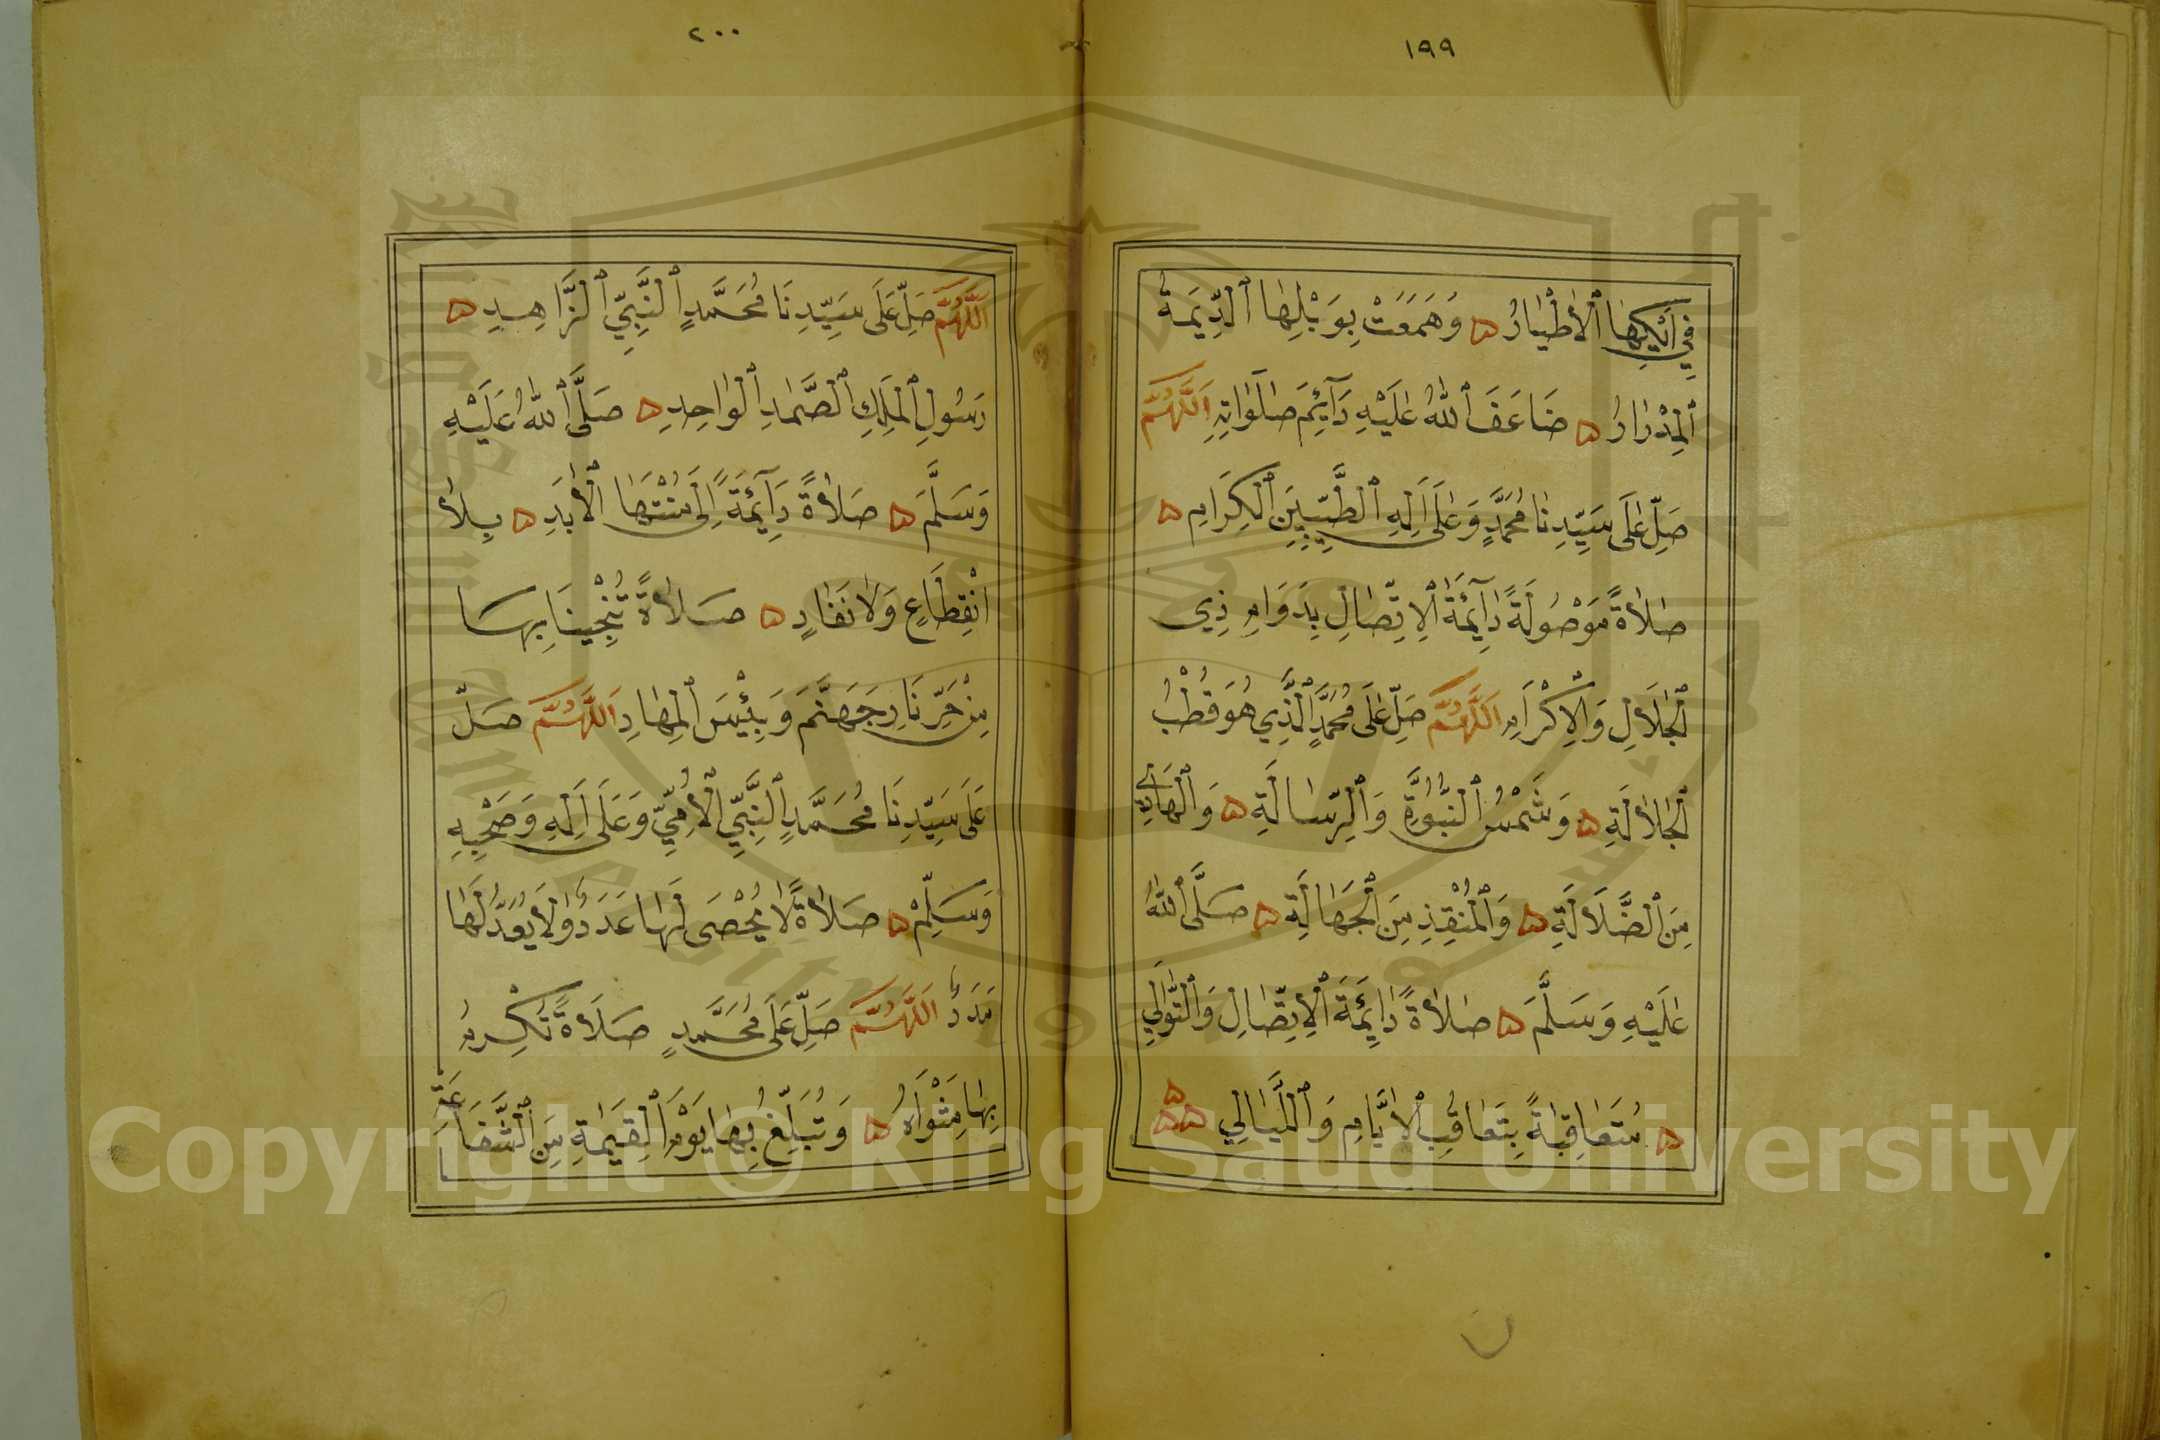 ١٩٩
فِي أَيْكِهَا ٱلْأَطْيَارُ ۞ وَهَمَعَتْ بِوَبْلِهَا ٱلدِّيَمَةُ
ٱلْمِدْرَارُ ۞ ضَاعَفَ ٱللهُ عَلَيْهِ دَآئِمَ صَلَوَاتِهِ اَللَّهُمَّ
صَلِّ عَلَى سَيِّدِنَا مُحَمَّدٍ وَعَلَى اَلِهِ ٱلطَّيِّبِينَ ٱلْكِرَامِ ۞
صَلَاةً مَوْصُولَةً دَآئِمَةَ ٱلْاِتِّصَالِ بِدَوَامِ ذِي
ٱلْجَلَالِ وَالْاِكْرَامِ اَللَّهُمَّ صَلِّ عَلَى مُحَمَّدٍ ٱلَّذِي هُوَ قُطْبُ
ٱلْجَلَالَةِ ۞ وَشَمْسُ ٱلنُّبُوَّةِ وَٱلرِّسَالَةِ ۞ وَٱلْهَادِي
مِنَ ٱلضَّلَالَةِ ۞ وَٱلْمُنْقِذِ مِنَ ٱلْجَهَالَةِ ۞ صَلَّى ٱللهُ
عَلَيْهِ وَسَلَّمَ ۞ صَلَاةً دَائِمَةَ ٱلْاِتِّصَالِ وَٱلتَّوَالِي
۞ مُتَعَاقِبَةً بِتَعَاقُبِ ٱلْاَيَّامِ وَٱللَّيَالِي ۞۞۞
٢٠٠
اَللَّهُمَّ صَلِّ عَلَى سَيِّدِنَا مُحَمَّدٍ ٱلنَّبِيِّ ٱلزَّاهِدِ ۞
رَسُولِ ٱلْمَلِكِ ٱلصَّمَدِ ٱلْوَاحِدِ ۞ صَلَّى ٱللهُ عَلَيْهِ
وَسَلَّمَ ۞ صَلَاةً دَآئِمَةً اِلَى مُنْتَهَا ٱلْأَبَدِ ۞ بِلَا
انْقِطَاعٍ وَلَا نَفَادٍ ۞ صَلَاةً تُنْجِينَا بِهَا
مِنْ حَرِّ نَارِ جَهَنَّمَ وَبِئْسَ ٱلْمِهَادِ اَللَّهُمَّ صَلِّ
عَلَى سَيِّدِنَا مُحَمَّدٍ ٱلنَّبِيِّ ٱلْأُمِّيِّ وَعَلَى اَلِهِ وَصَحْبِهِ
وَسَلِّمْ ۞ صَلَاةً لَا يُحْصَى لَهَا عَدَدٌ وَلَا يُعَدُّ لَهَا
مَدَدٌ اَللَّهُمَّ صَلِّ عَلَى مُحَمَّدٍ صَلَاةً تُكْرِمُ
بِهَا مَثْوَاهُ ۞ وَتُبَلِّغُ بِهَا يَوْمَ ٱلْقِيَمَةِ مِنَ ٱلشَّفَاعَةِ
Copyright © King Saud University